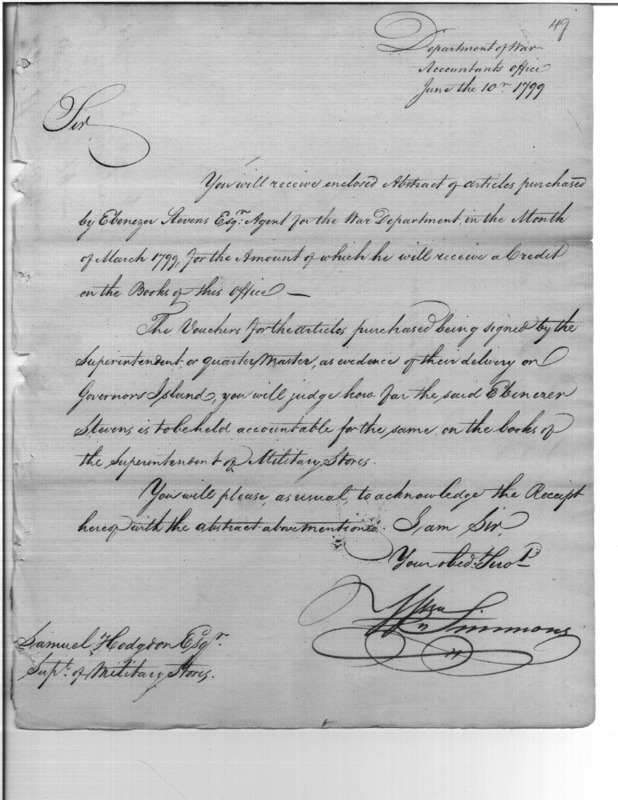 49
Department of War
Accountants office
June the 10th 1799
Sir,
You will receive enclosed Abstract of articles purchased
by Ebenezer Stevens Esqr. Agent for the War Department, in the Month
of March 1799, for the Amount of which he will receive a Credit
on the Books of this office —
The Vouchers for the articles purchased being signed by the
Superintendent, or Quarter Master, as evidence of their delivery on
Governors Island, you will judge how far the said Ebenezer
Stevens is to be held accountable for the same, on the books of
the Superintendent of Military Stores.
You will please, as usual, to acknowledge the Receipt
hereof with the abstract above mentioned. I am Sir,
Your obedt. Servt.
Wm Simmons
Samuel Hodgdon Esqr.
Supt. of Military Stores.